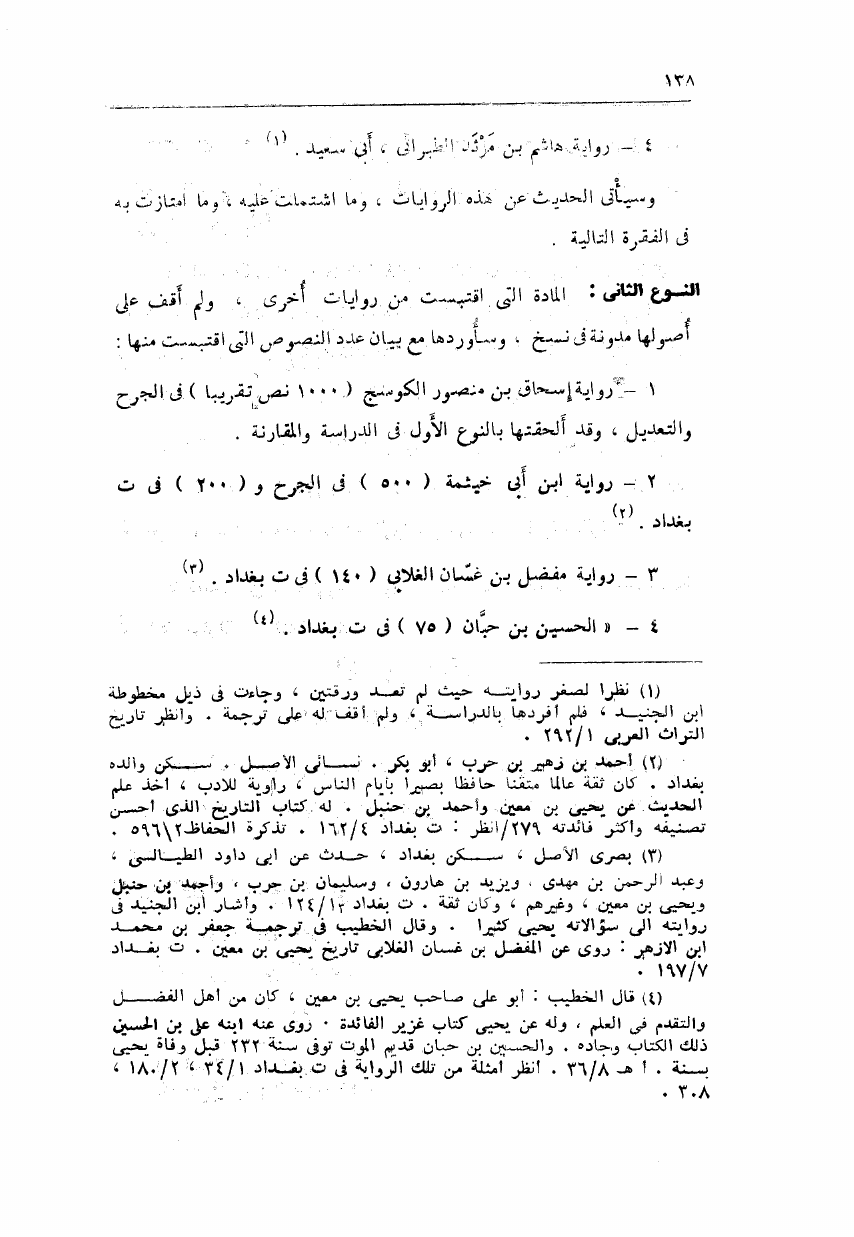 ١٣٨
٤ – رواية هاشم بن مَرْثَد الطبرانى ، أبى سعيد . (١)
وسيأتى الحديث عن هذه الروايات ، وما اشتملت عليه ، وما امتازت به
فى الفقرة التالية .
النوع الثانى : المادة التى اقتبست من روايات أخرى ، ولم أقف على
أصولها مدونة فى نسخ ، وسأوردها مع بيان عدد النصوص التى اقتبست منها :
١ – رواية إسحاق بن منصور الكوسج ( ١٠٠٠ نص تقريبا ) فى الجرح
والتعديل ، وقد ألحقتها بالنوع الأول فى الدراسة والمقارنة .
٢ – رواية ابن أبى خيثمة ( ٥٠٠ ) فى الجرح و ( ٢٠٠ ) فى ت
بغداد . (٢)
٣ – رواية مفضل بن غسّان الغلابى ( ١٤٠ ) فى ت بغداد . (٣)
٤ – « الحسين بن حبَّان ( ٧٥ ) فى ت بغداد . (٤)
(١) نظرا لصغر روايته حيث لم تعد ورقتين ، وجاءت فى ذيل مخطوطة
ابن الجنيد ، فلم أفردها بالدراسة ، ولم أقف له على ترجمة . وانظر تاريخ
التراث العربى ٢٩٢/١ .
(٢) أحمد بن زهير بن حرب ، أبو بكر . نسائى الأصل . سكن والده
بغداد . كان ثقة عالما متقنا حافظا بصيرا بأيام الناس ، راوية للأدب ، أخذ علم
الحديث عن يحيى بن معين وأحمد بن حنبل . له كتاب التاريخ الذى أحسن
تصنيفه وأكثر فائدته ٢٧٩/انظر : ت بغداد ١٦٢/٤ . تذكرة الحفاظ٢\٥٩٦ .
(٣) بصرى الأصل ، سكن بغداد ، حدث عن أبى داود الطيالسى ،
وعبد الرحمن بن مهدى . ويزيد بن هارون ، وسليمان بن حرب ، وأحمد بن حنبل
ويحيى بن معين ، وغيرهم ، وكان ثقة . ت بغداد ١٢٤/١٣ . وأشار ابن الجنيد فى
روايته الى سؤالاته يحيى كثيرا . وقال الخطيب فى ترجمة جعفر بن محمد
ابن الأزهر : روى عن المفضل بن غسان الغلابى تاريخ يحيى بن معين . ت بغداد
١٩٧/٧ .
(٤) قال الخطيب : أبو على صاحب يحيى بن معين ، كان من أهل الفضل
والتقدم فى العلم ، وله عن يحيى كتاب غزير الفائدة . روى عنه ابنه على بن الحسين
ذلك الكتاب وجاده . والحسين بن حبان قديم الموت توفى سنة ٢٣٢ قبل وفاة يحيى
بسنة . أ هـ ٣٦/٨ . انظر أمثلة من تلك الرواية فى ت بغداد ٣٤/١ ، ١٨٠/٢ ،
٣٠٨ .